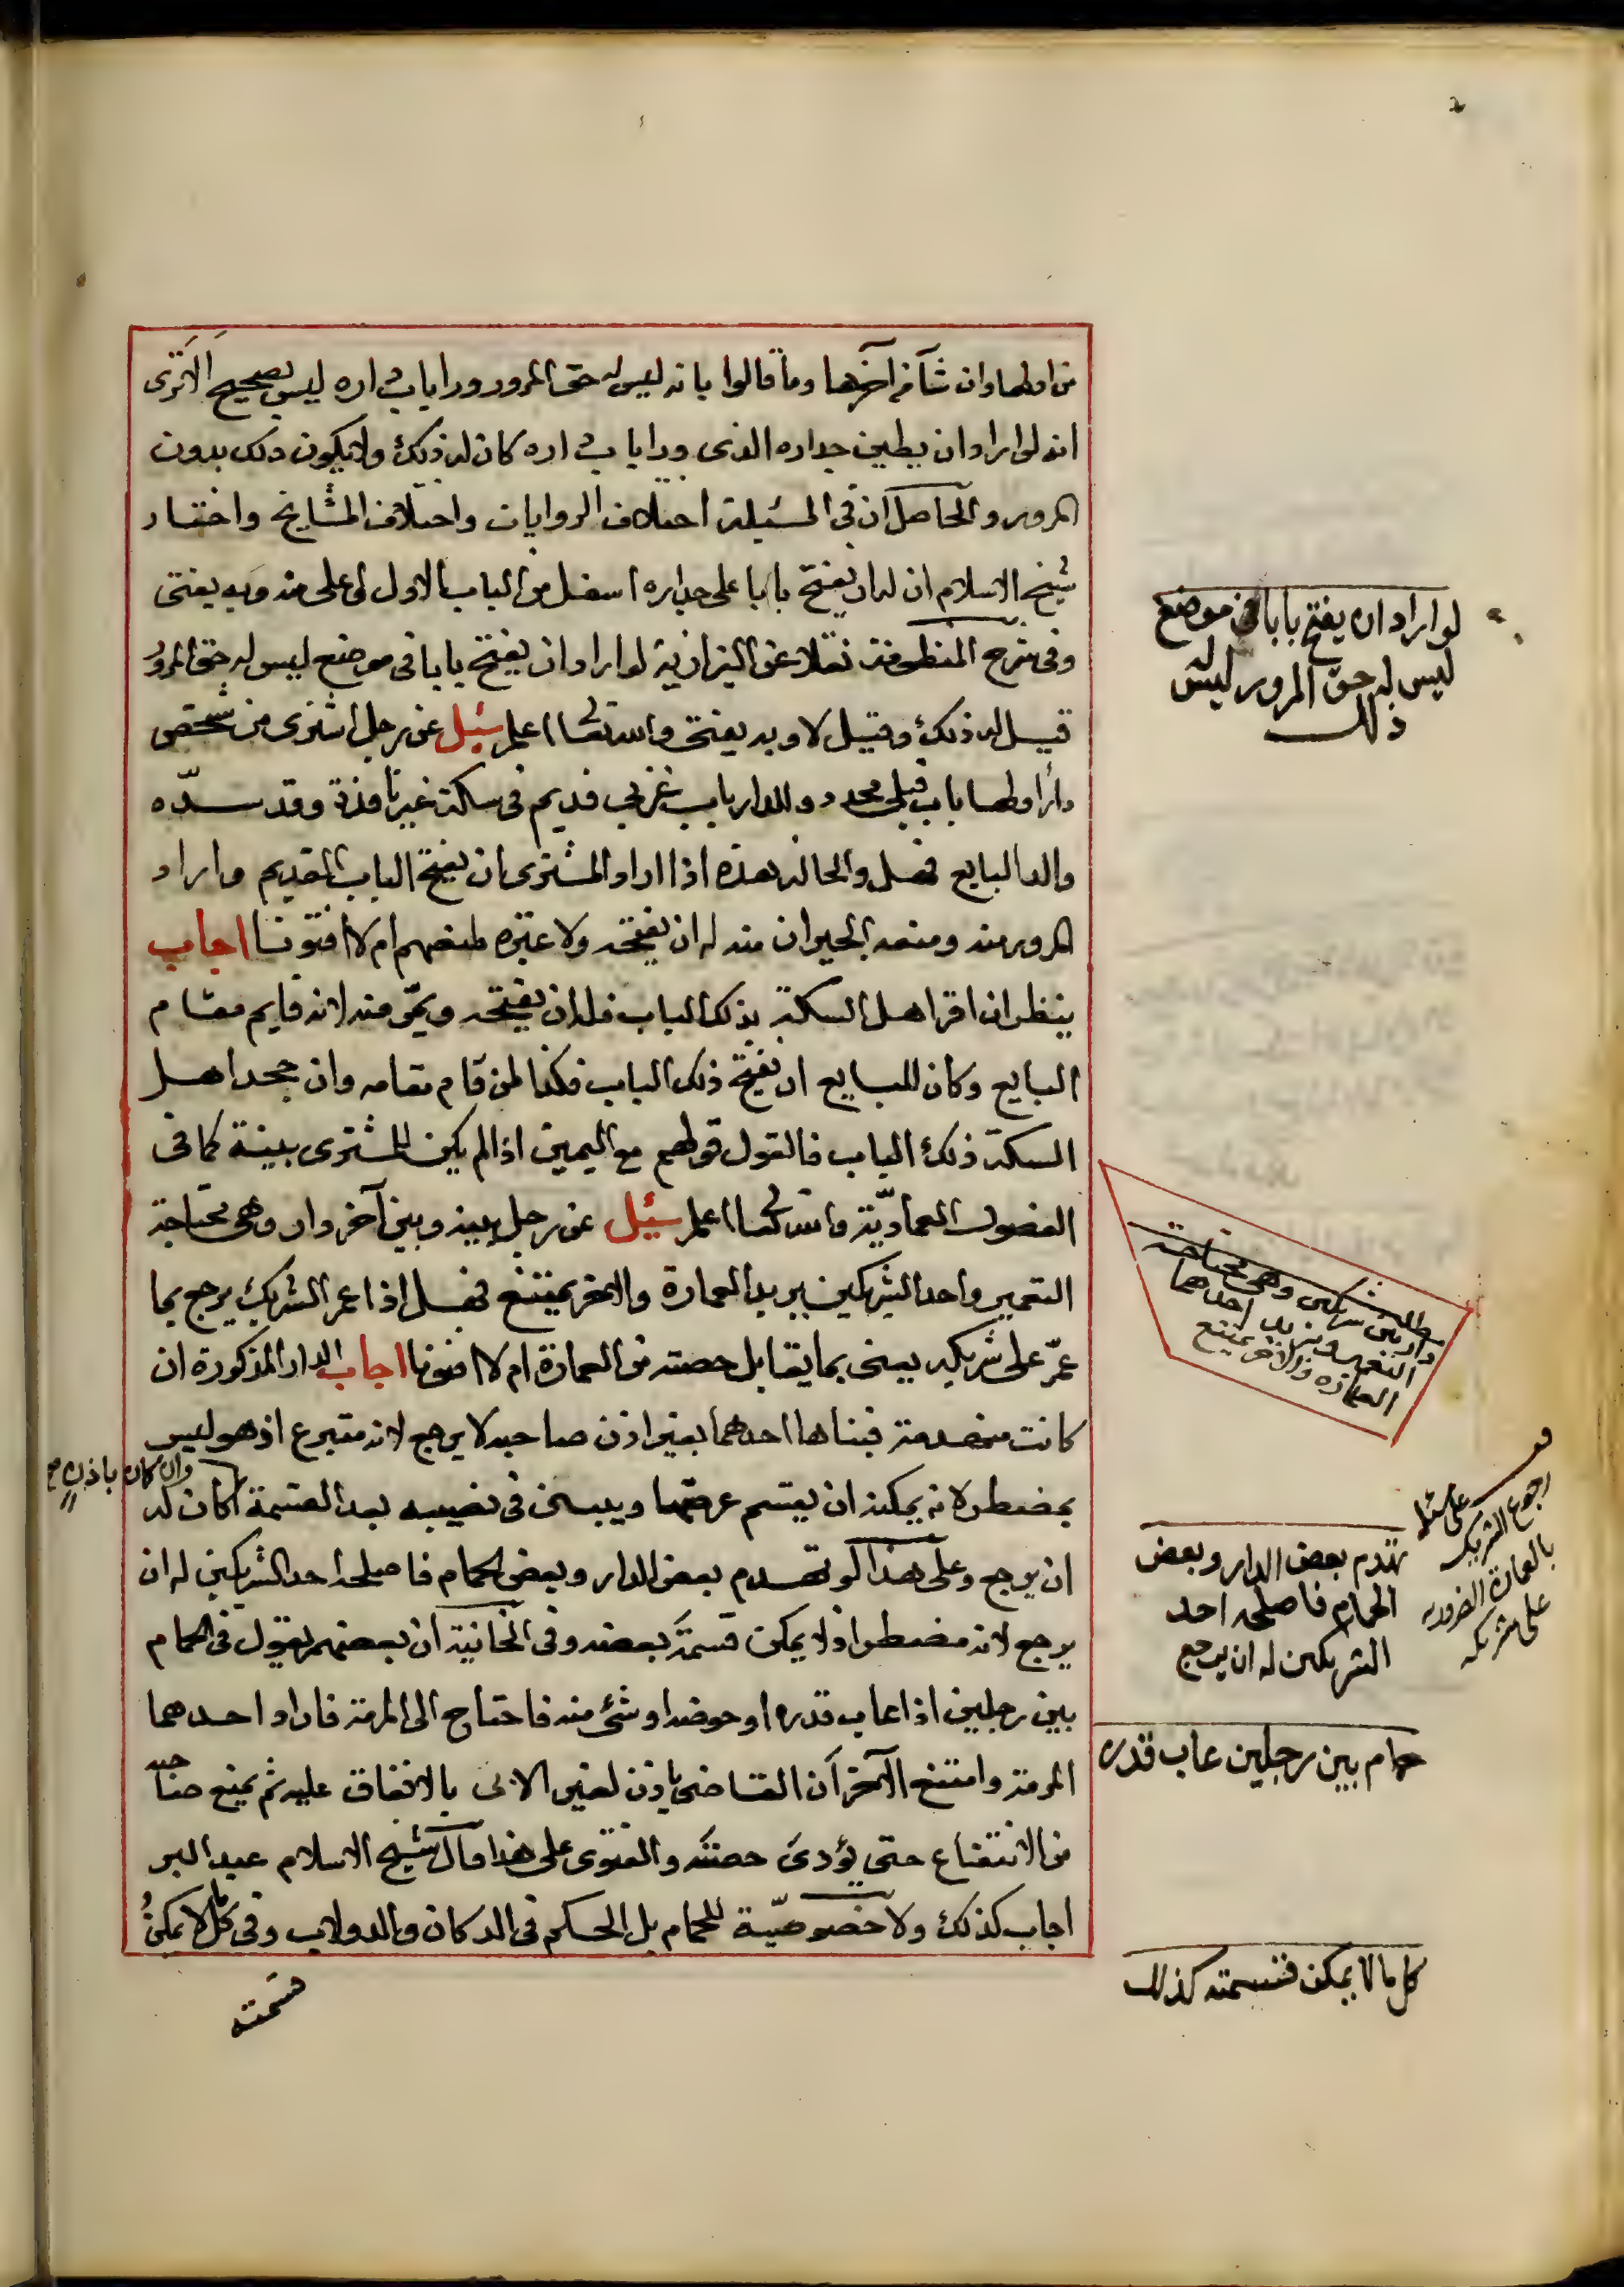 من اولها وان شا من اخرها وما قالوا بانه ليس له حق المرور ورا باب داره ليس بصحيح الا ترى
انه لو اراد ان يطين جداره الذى ورا باب داره كان له ذلك ولا يكون ذلك بدون
المرور والحاصل ان فى المسئلة اختلاف الروايات واختلاف المشايخ واختيار
شيخ الاسلام ان له ان يفتح بابا على جداره اسفل من الباب الاول او اعلى منه وبه يفتى
وفى شرح المنظومة نقلا عن البزازية لو اراد ان يفتح بابا فى موضع ليس له حق المرور
قيل له ذلك وقيل لا وبه يفتى والله تعالى اعلم سئل عن رجل اشترى من شخص
دارا ولها باب قبلى محدد وللدار باب غربى قديم فى سكة غير نافذة وقد سدّه
والد البايع فهل والحالة هذه اذا اراد المشترى ان يفتح الباب القديم واراد
المرور منه ومنعه الجيران منه له ان يفتحه ولا عبرة لمنعهم ام لا افتونا اجاب
ينظر ان اقر اهل السكة بذلك الباب فله ان يفتحه ويمرّ منه لانه قايم مقام
البايع وكان للبايع ان يفتح ذلك الباب فكذا لمن قام مقامه وان جحد اهل
السكة ذلك الباب فالقول قولهم مع اليمين اذا لم يكن للمشترى بينة كما فى
الفصول العمادّية والله تعالى اعلم سئيل عن رجل بينه وبين آخر دار وهى محتاجة
التعمير واحد الشريكين يريد العمارة والاخر يمتنع فهل اذا عمر الشريك يرجع بما
عمّر على شريكه يعنى بما يقابل حصته من العمارة ام لا افتونا اجاب الدار المذكورة ان
كانت منهدمة فبناها احدهما بغير اذن صاحبه لا يرجع لانه متبرع اذ هو ليس
بمضطر لانه يمكنه ان يقسم عرصتها ويبنى فى نصيبه بعد القسمة كان له
وان كان باذنه صح
ان يرجع وعلى هذا لو تهدم بعض الدار وبعض الحمام فاصلحه احد الشريكين له ان
يرجع لانه مضطر اذ لا يمكن قسمة بعضه وفى الخانية ان بعضهم يقول فى الحمام
بين رجلين اذا عاب قدره او حوضه او شئ منه فاحتاج الى المرمة فاراد احدهما
المرمة وامتنع الآخر ان القاضى ياذن لغير الابى بالانفاق عليه ثم يمنع صاحبه
من الانتفاع حتى يؤدى حصته والفتوى على هذا قال شيخ الاسلام عبد البر
اجاب كذلك ولا خصوصيّة للحمام بل الحكم فى الدكان والدولاب وفى كل ما لا يمكن
قسمته
لو اراد ان يفتح بابا فى موضع
ليس له حق المرور ليس له
ذلك
دار بين شريكين وهى محتاجة
التعمير ويريد احدهما
العمارة والاخر يمتنع
رجوع الشريك
بالعمارة الضرورية
على شريكه
تهدم بعض الدار وبعض
الحمام فاصلحه احد
الشريكين له ان يرجع
حمام بين رجلين عاب قدره
كل ما لا يمكن قسمته كذلك